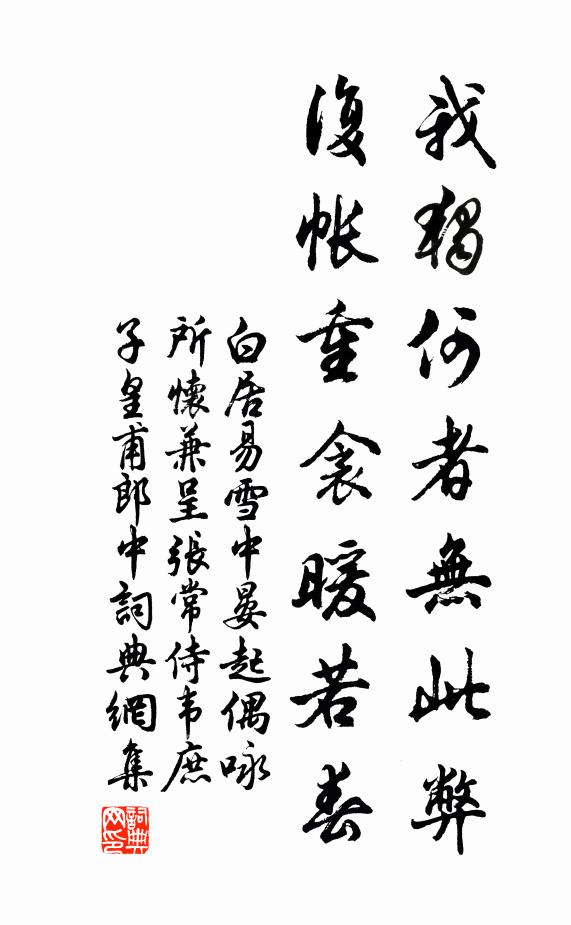 我獨何者無此弊
復帳重衾暖若春
白居易雪中晏起偶咏
所懷兼呈張常侍韦庶
子皇甫郎中詞典網集
詞典
网印